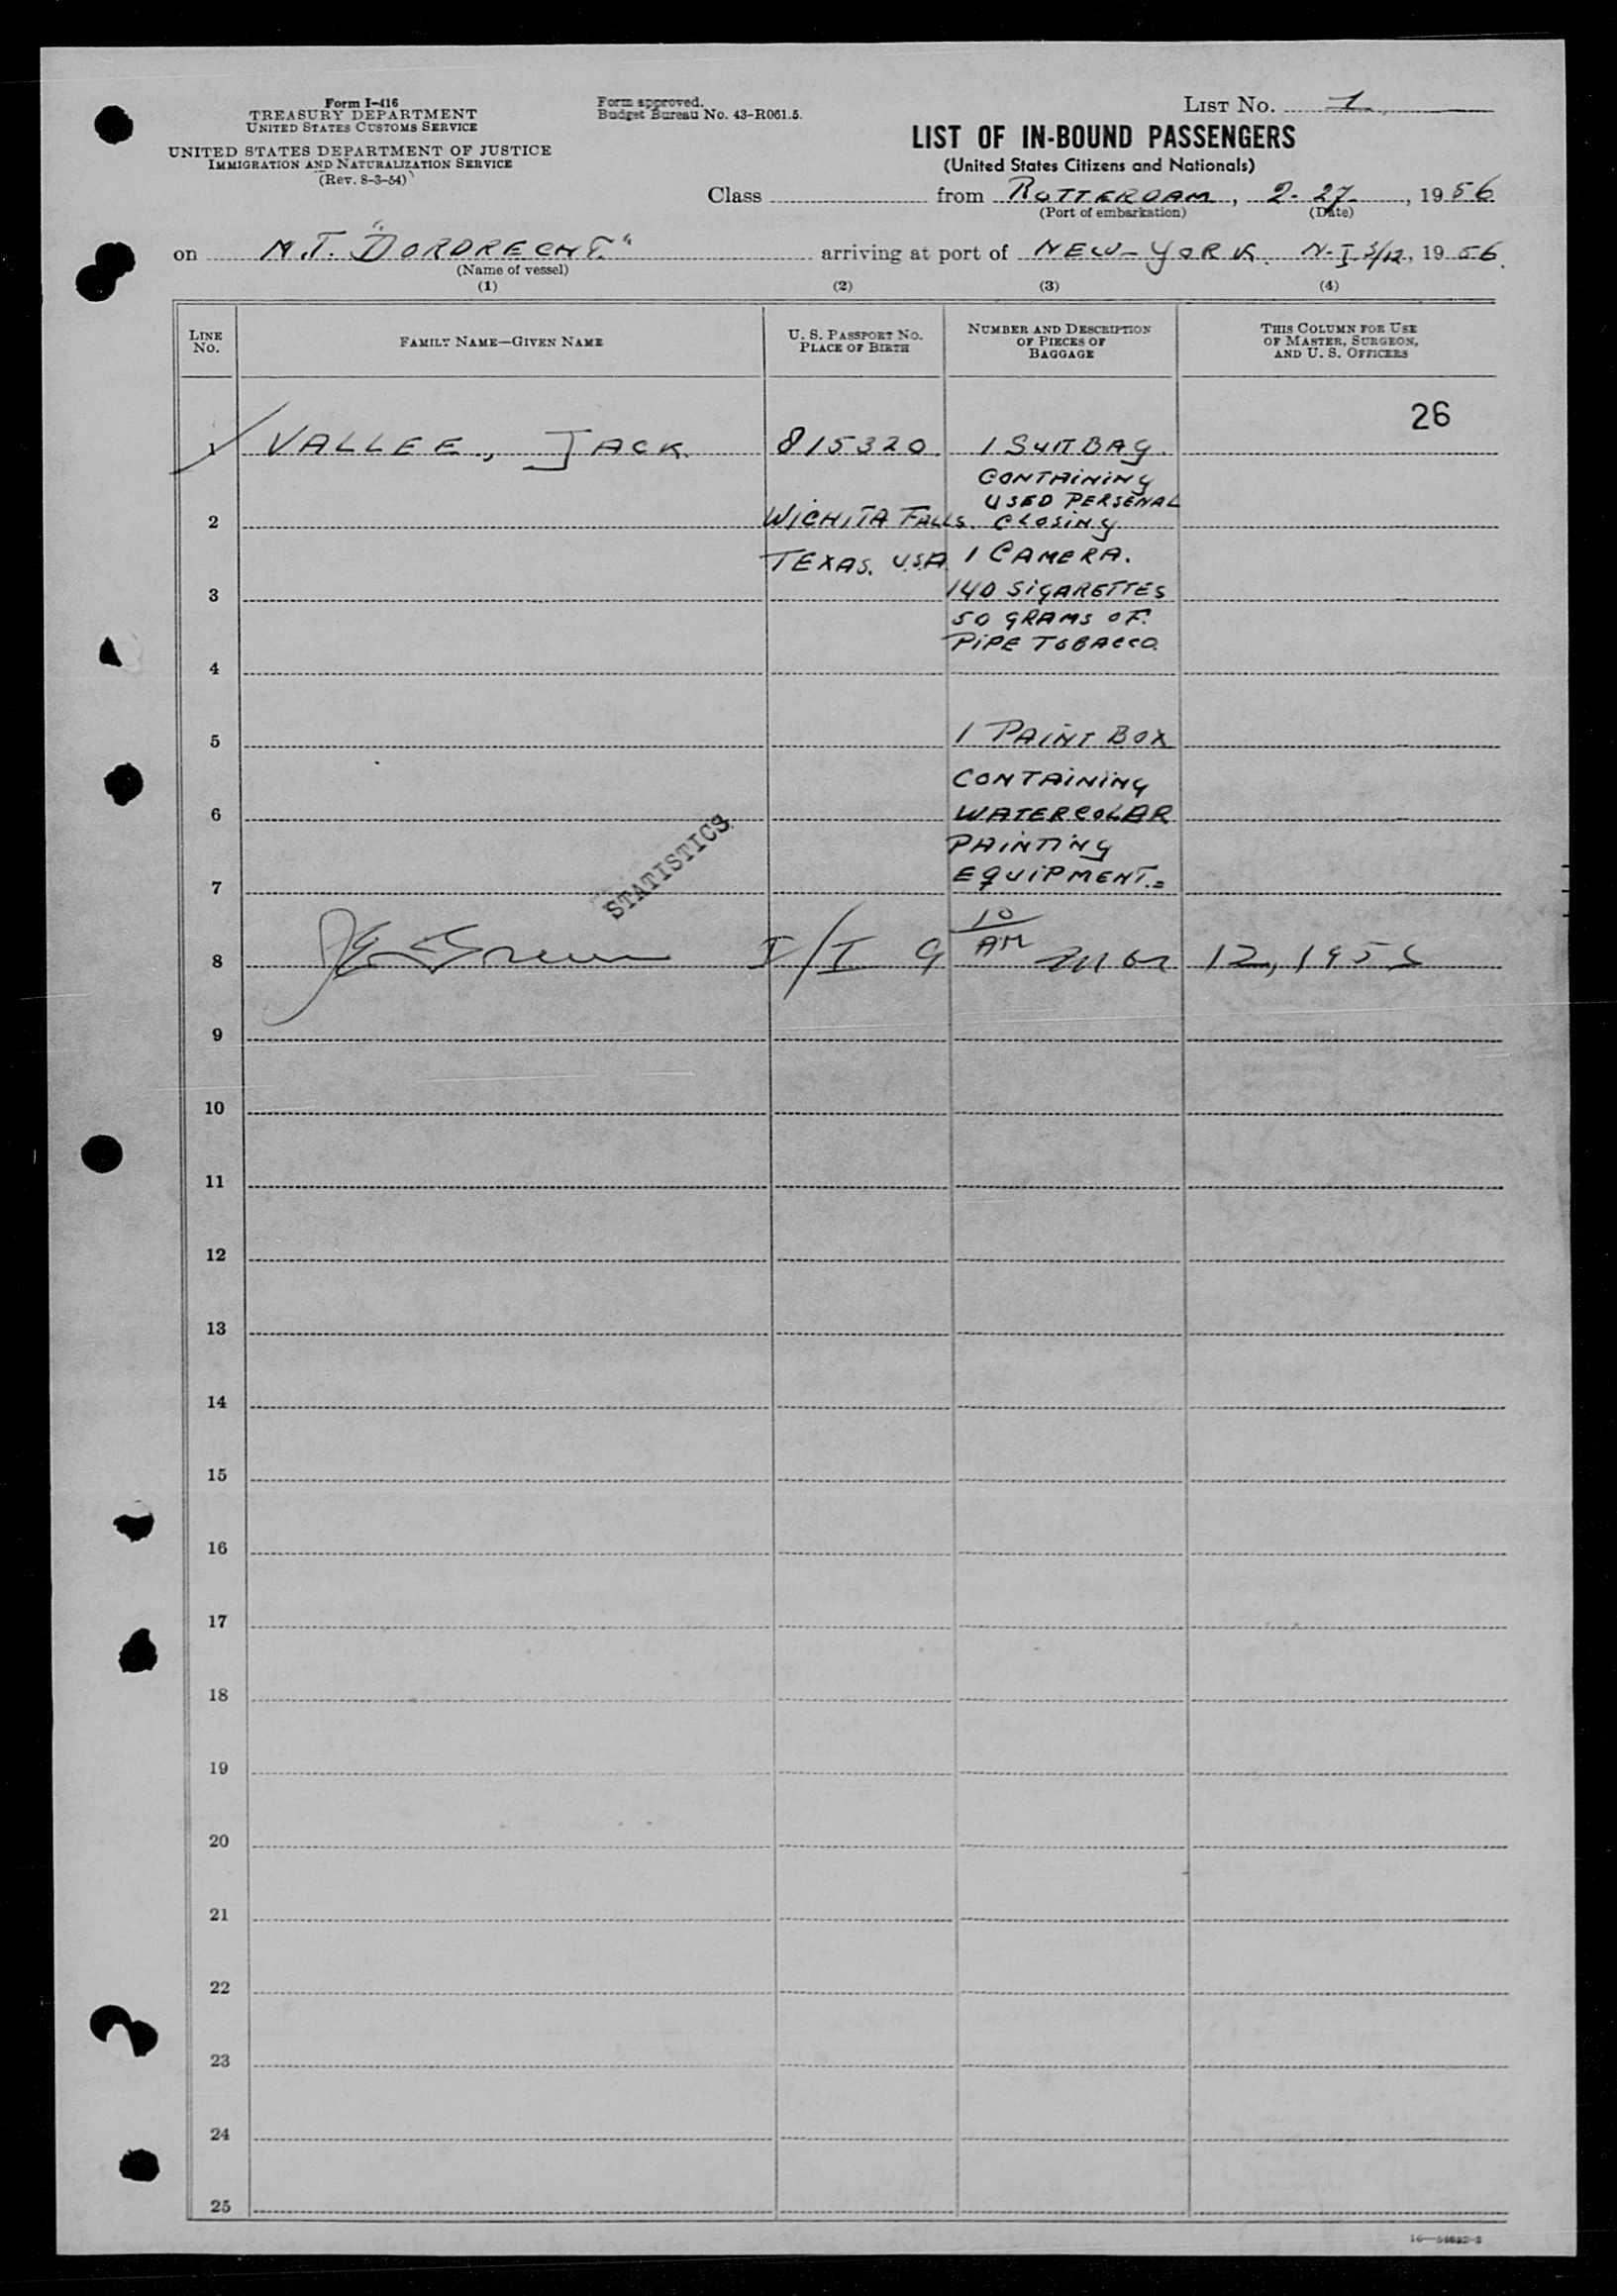 Form I-416
TREASURY DEPARTMENT
UNITED STATES CUSTOMS SERVICE
UNITED STATES DEPARTMENT OF JUSTICE
IMMIGRATION AND NATURALIZATION SERVICE
(Rev. 8-3-54)
Form approved.
Budget Bureau No. 43-R061.5.
LIST NO. 1
LIST OF IN-BOUND PASSENGERS
(United States Citizens and Nationals)
Class from ROTTERDAM, 2-27, 1956
(Port of embarkation) (Date)
on M.T. "DORDRECHT" arriving at port of NEW-YORK. 3/12, 1956.
(Name of vessel)
(1) (2) (3) (4)
LINE NO.
FAMILY NAME—GIVEN NAME
U. S. PASSPORT NO.
PLACE OF BIRTH
NUMBER AND DESCRIPTION
OF PIECES OF
BAGGAGE
THIS COLUMN FOR USE
OF MASTER, SURGEON,
AND U. S. OFFICERS
26
1 VALLEE, JACK. 815320. 1 SUITBAG.
CONTAINING
USED PERSENAL
2 WICHITA FALLS. CLOSING
TEXAS. U.S.A. 1 CAMERA.
3 140 SIGARETTES
50 GRAMS OF.
PIPE TOBACCO.
4
5 1 PAINT BOX
CONTAINING
6 WATERCOLAR
PAINTING
7 EQUIPMENT.=
STATISTICS
8 I/I 9 10 AM Mar 12, 1956
9
10
11
12
13
14
15
16
17
18
19
20
21
22
23
24
25